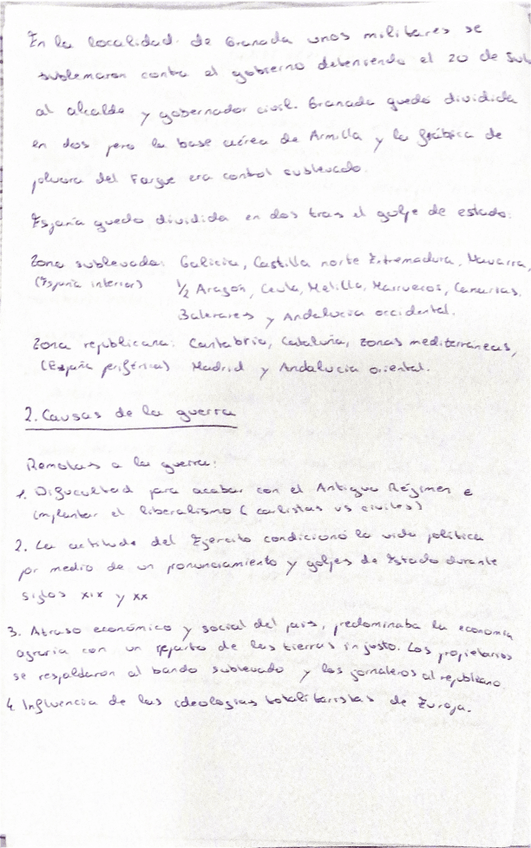 En la localidad de Granada unos militares se
sublevaron contra el gobierno deteniendo el 20 de Jul
al alcalde y gobernador civil. Granada quedó dividida
en dos pero la base aérea de Armilla y la fábrica de
pólvora del Fargue era control sublevado.
España quedo dividida en dos tras el golpe de estado:
Zona sublevada: Galicia, Castilla norte Extremadura, Navarra,
(España interior) 1/2 Aragón, Ceuta, Melilla, Marruecos, Canarias,
Baleares y Andalucia occidental.
Zona republicana: Cantabria, Cataluña, zonas mediterraneas,
(España periférica) Madrid y Andalucia oriental.
2. Causas de la guerra
Remotas a la guerra:
1. Dificultad para acabar con el Antiguo Régimen e
implantar el liberalismo (carlistas vs civiles)
2. La actitud del Ejercito condicionó la vida política
por medio de un pronunciamiento y golpes de Estado durante
siglos XIX y XX
3. Atraso económico y social del pais, predominaba la economía
agraria con un reparto de las tierras injusto. Los propietarios
se respaldaron al bando sublevado y los jornaleros al republicano.
4. Influencia de las ideologias totalitaristas de Europa.